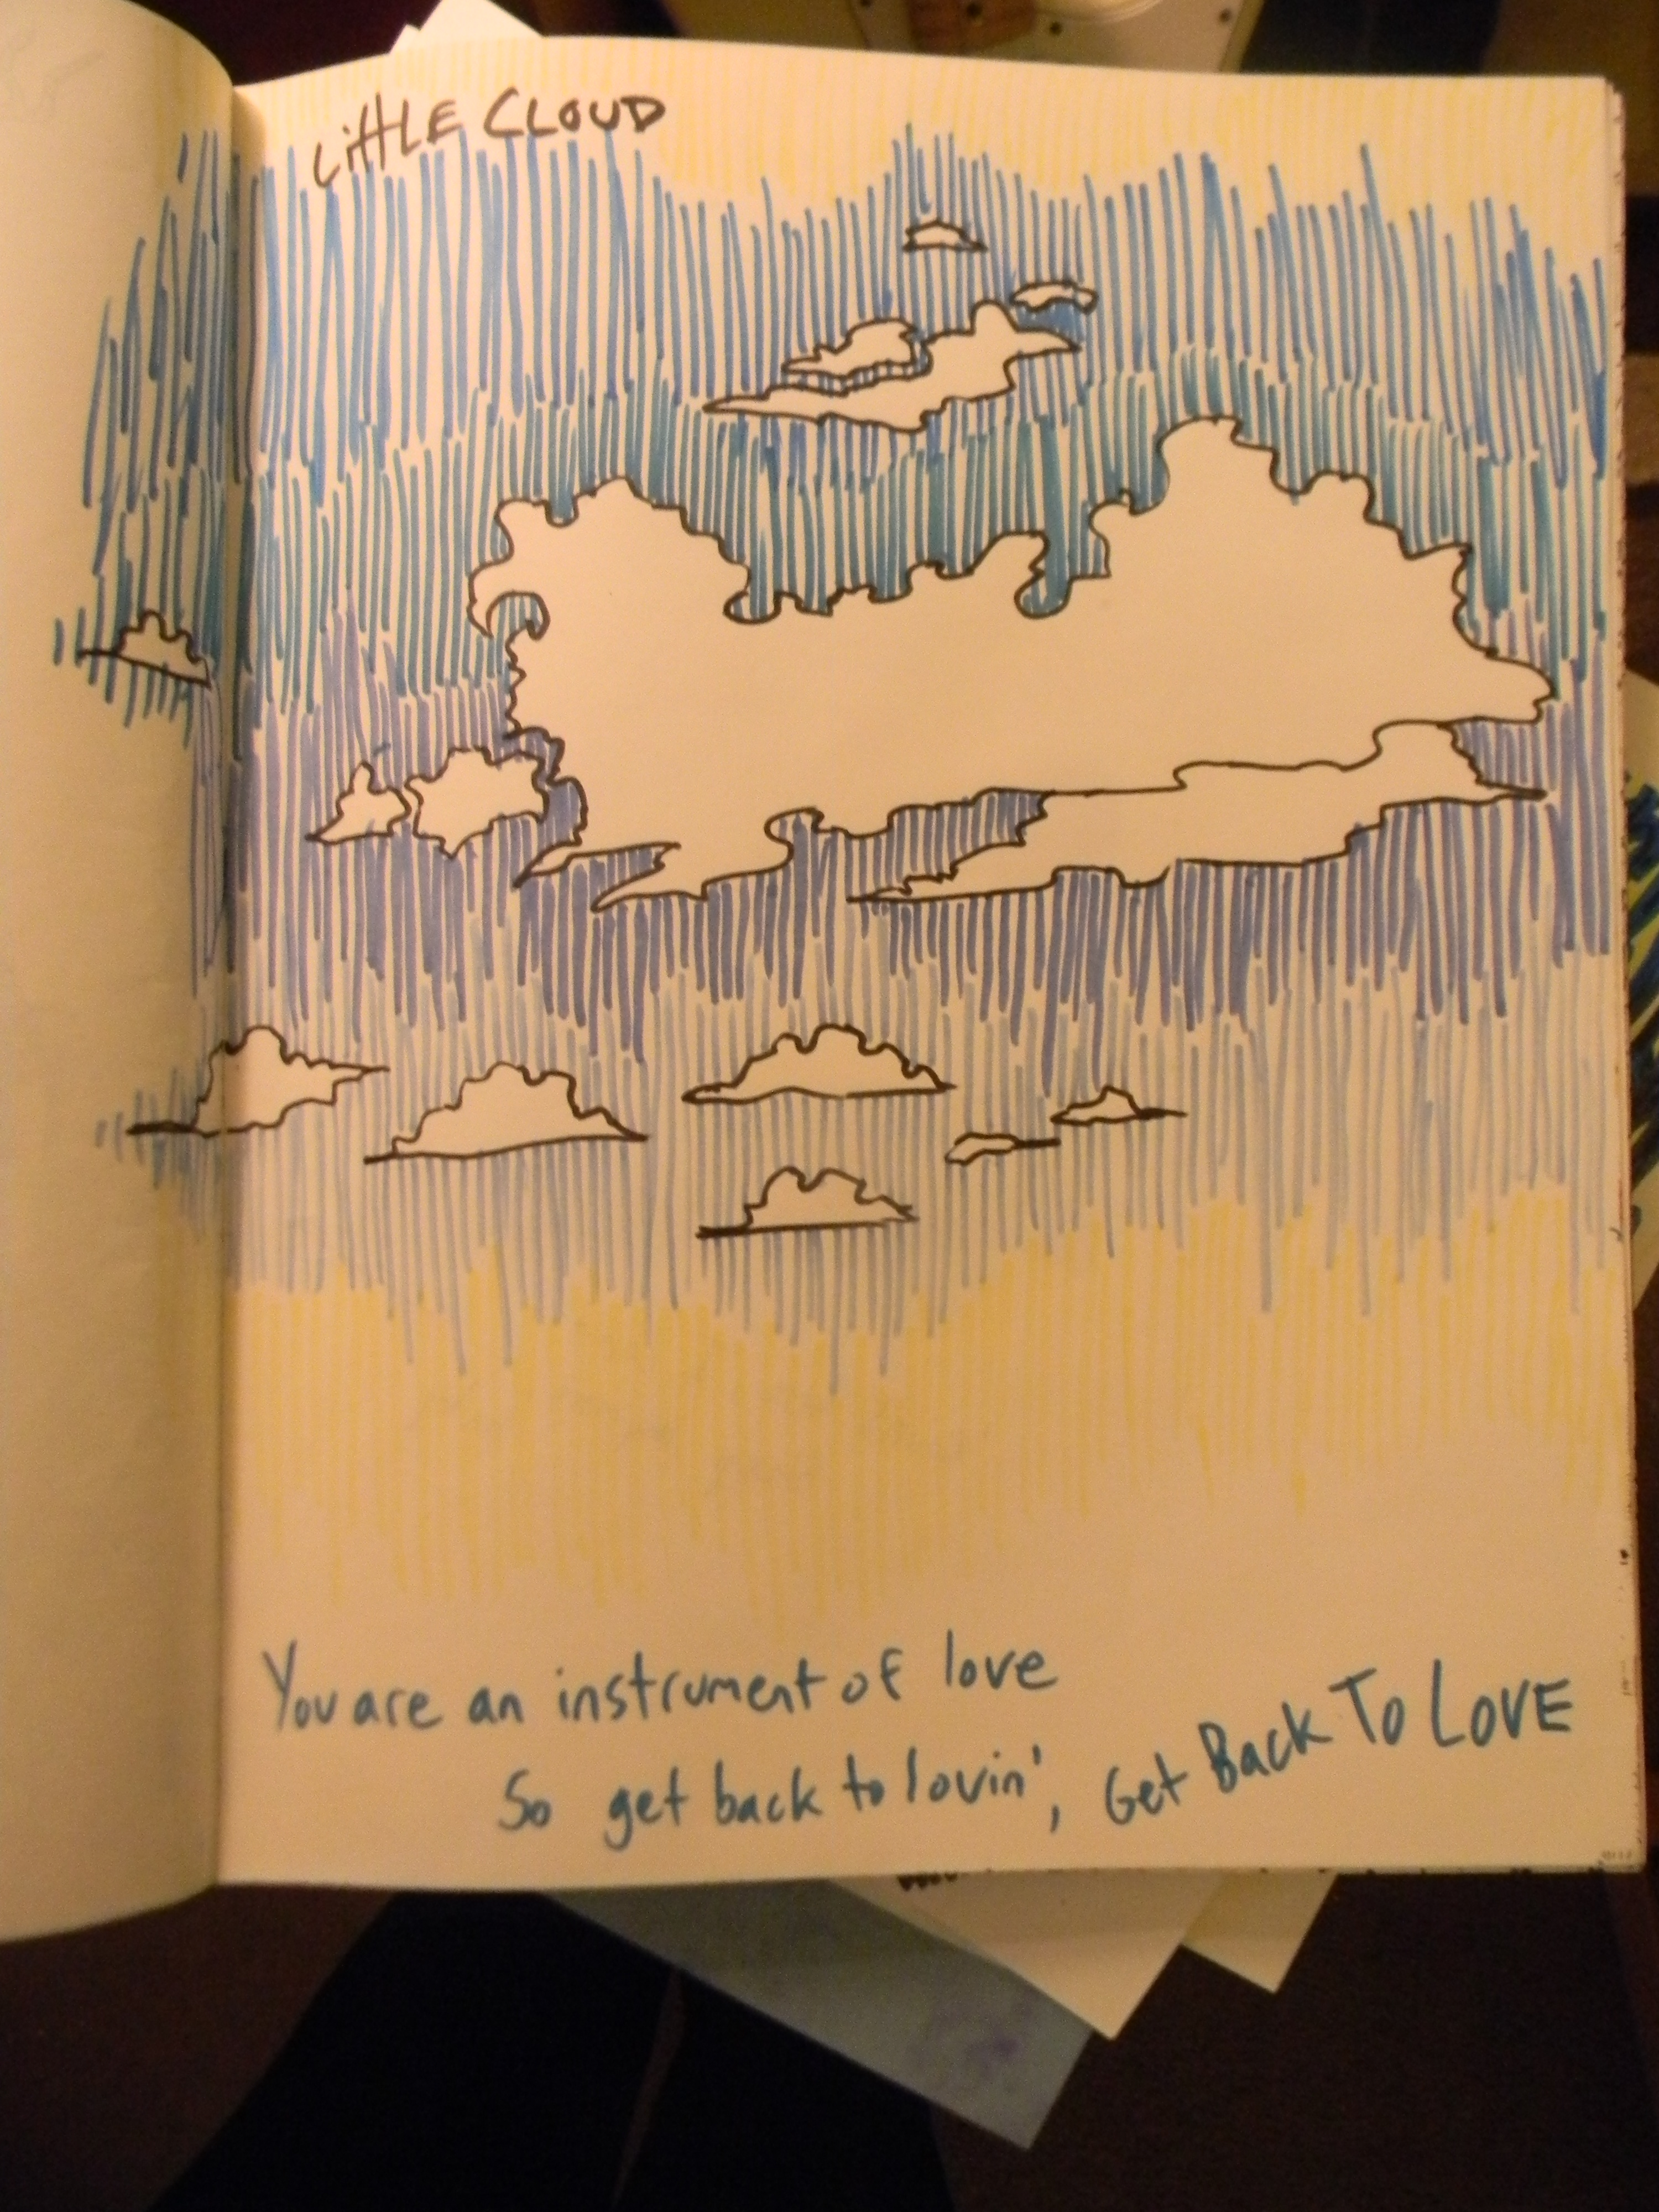 LittLE CLOUD
You are an instrument of love
So get back to lovin', Get Back To LOVE